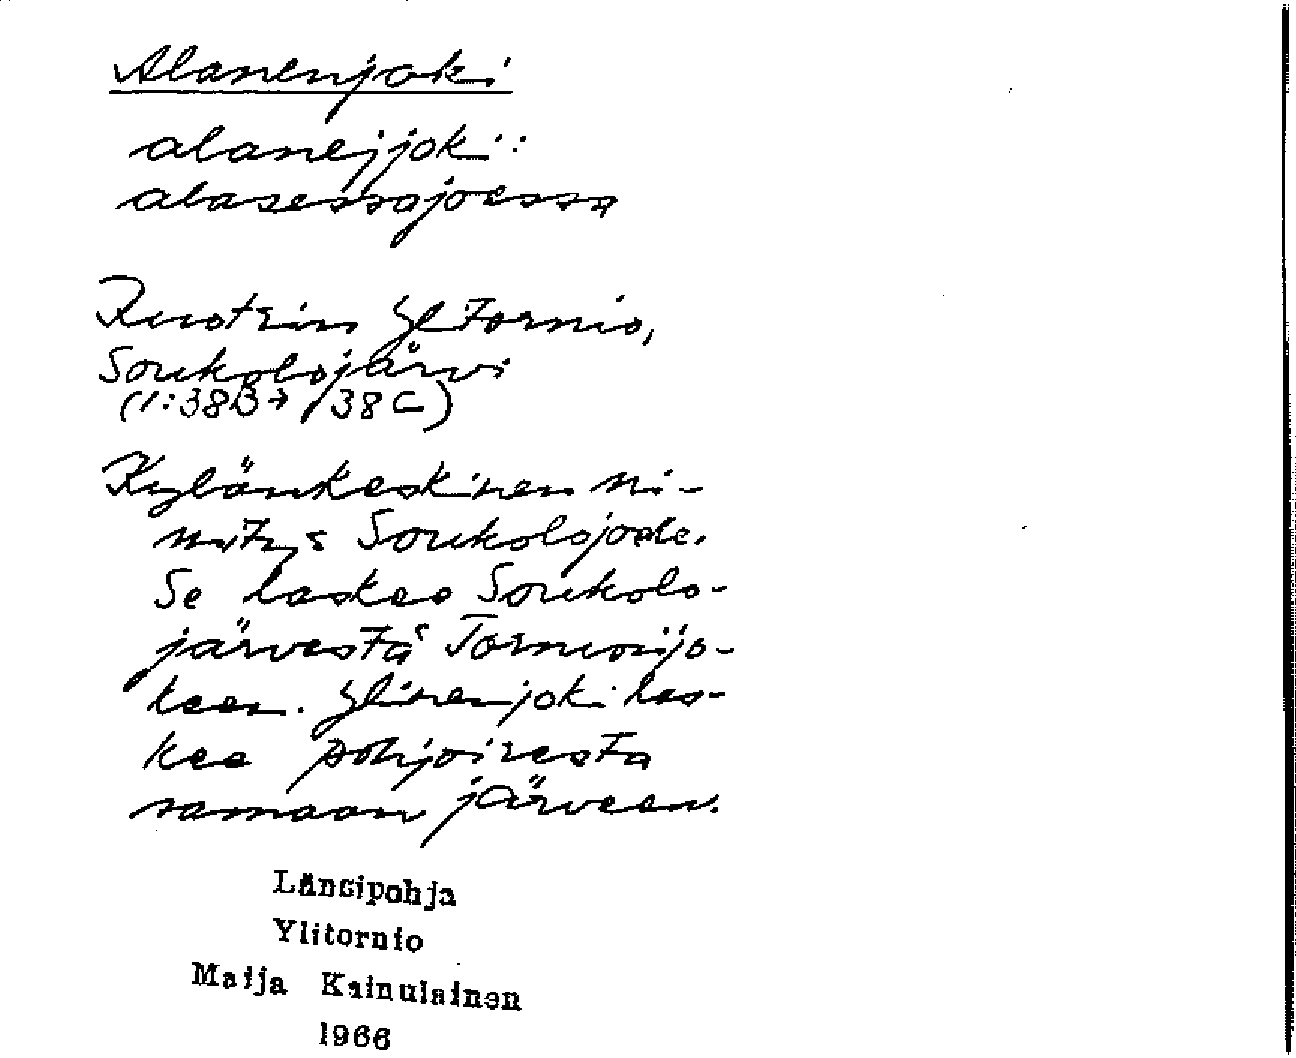 Alanenjoki
alanejjoki:
alasessajoessa
Ruotsin Ylitornio,
Soukolojärvi
(1:38B→/38C)
Kylänkeskinen ni-
mitys Soukolojoelle.
Se laskee Soukolo-
järvestä Tornionjo-
keen. Ylinenjoki las-
kee pohjoisesta
samaan järveen.
Länsipohja
Ylitornio
Maija Kainulainen
1966